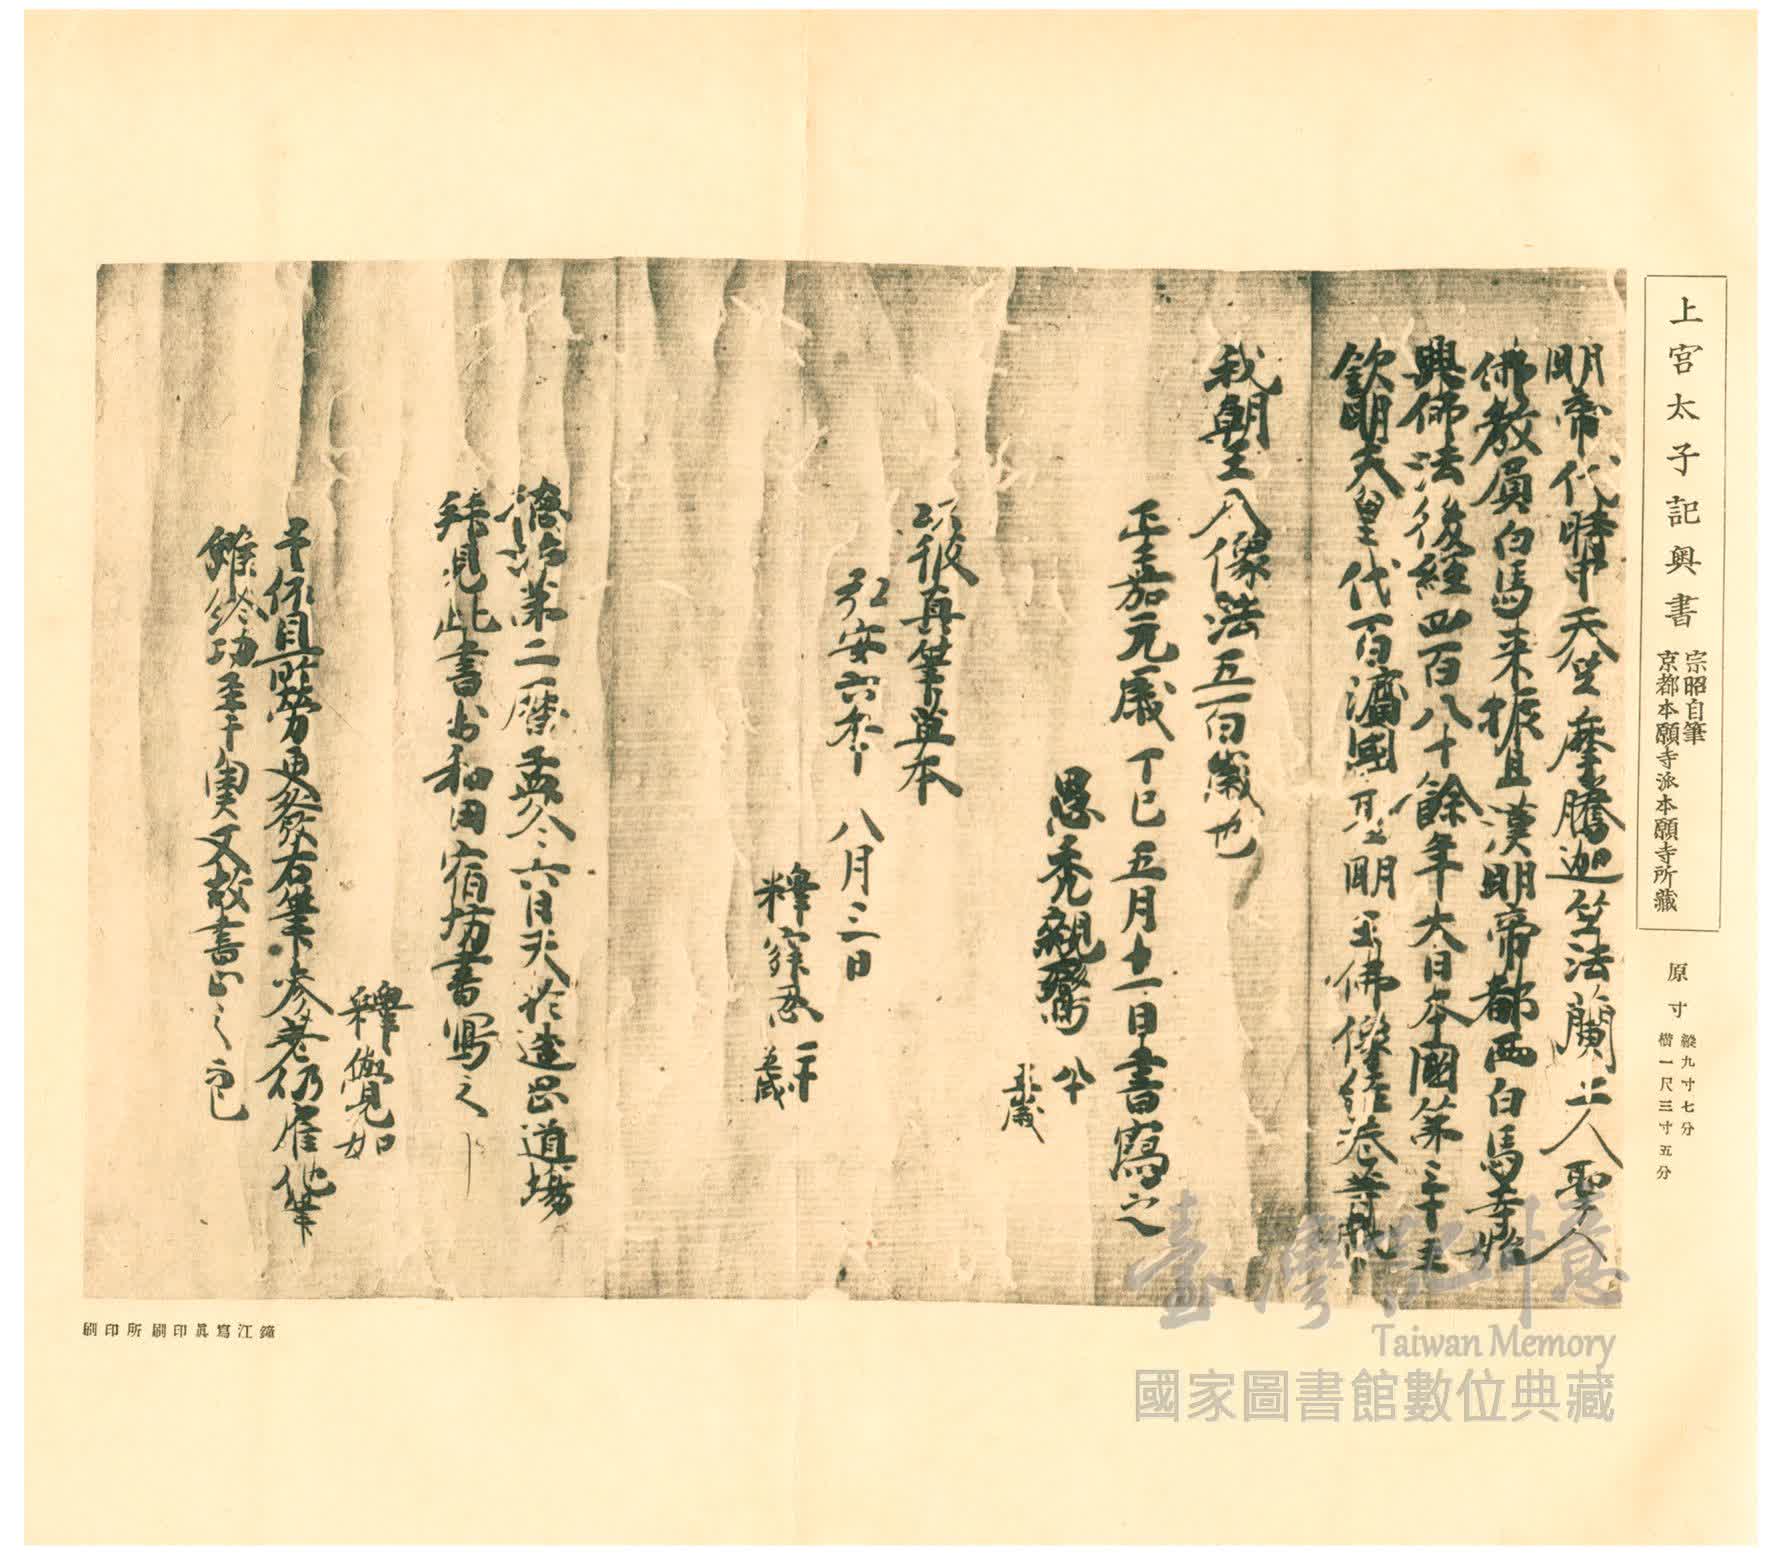 上宮太子記奥書
宗昭自筆
京都本願寺派本願寺所藏
原寸
縱九寸七分
橫一尺三寸五分
明帝代時中天竺摩騰迦竺法蘭上人聖人
佛教屓白馬来振旦漢明帝都西白馬寺始
興佛法後經四百八十餘年大日本國第三十主
欽明天皇代百濟國聖明王佛像經卷等献
我朝主入像法五百歳也
正嘉元歳丁巳五月十一日書寫之
愚禿親鸞
八十五歳
以彼真筆草本
弘安六年八月三日
釋寂忍
二十五歳
德治第二暦孟冬六日天於造岡道場
拜見此書於和田宿坊書寫之
釋覺如
予依目所勞更發右筆参差仍雇他筆
雖終功至于奥又敢書之而已
鐘江寫眞印刷所印刷
臺灣記憶
Taiwan Memory
國家圖書館數位典藏